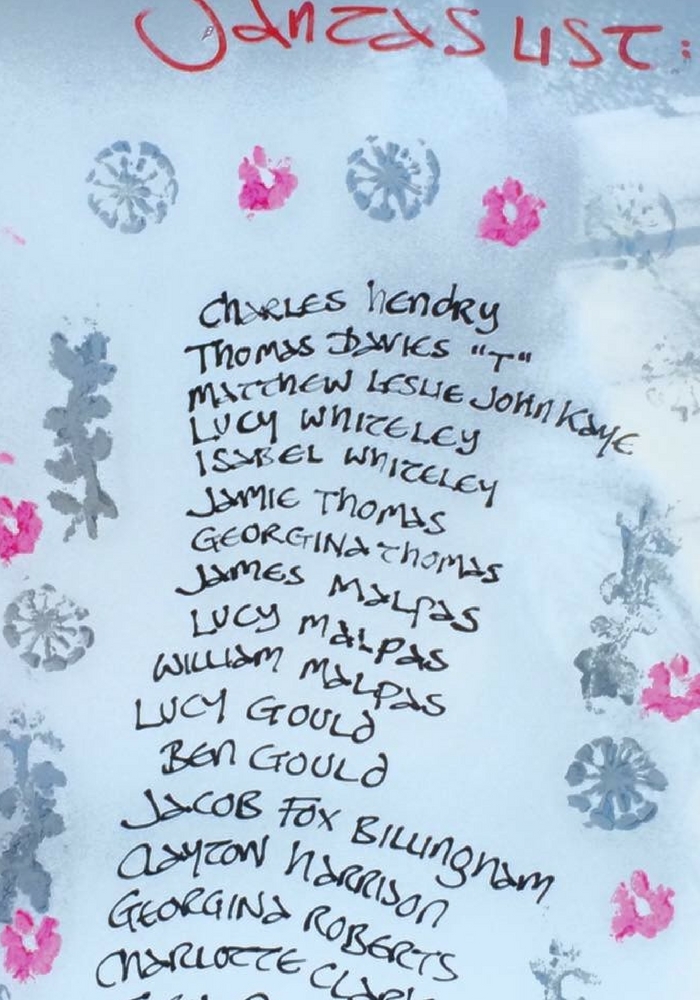 Santas LIST:
Charles Hendry
Thomas Davies "T"
Matthew Leslie John Kaye
Lucy Whiteley
Isabel Whiteley
Jamie Thomas
Georgina Thomas
James Malpas
Lucy Malpas
William Malpas
Lucy Gould
Ben Gould
Jacob Fox Billingham
Clayton Harrison
Georgina Roberts
Charlotte